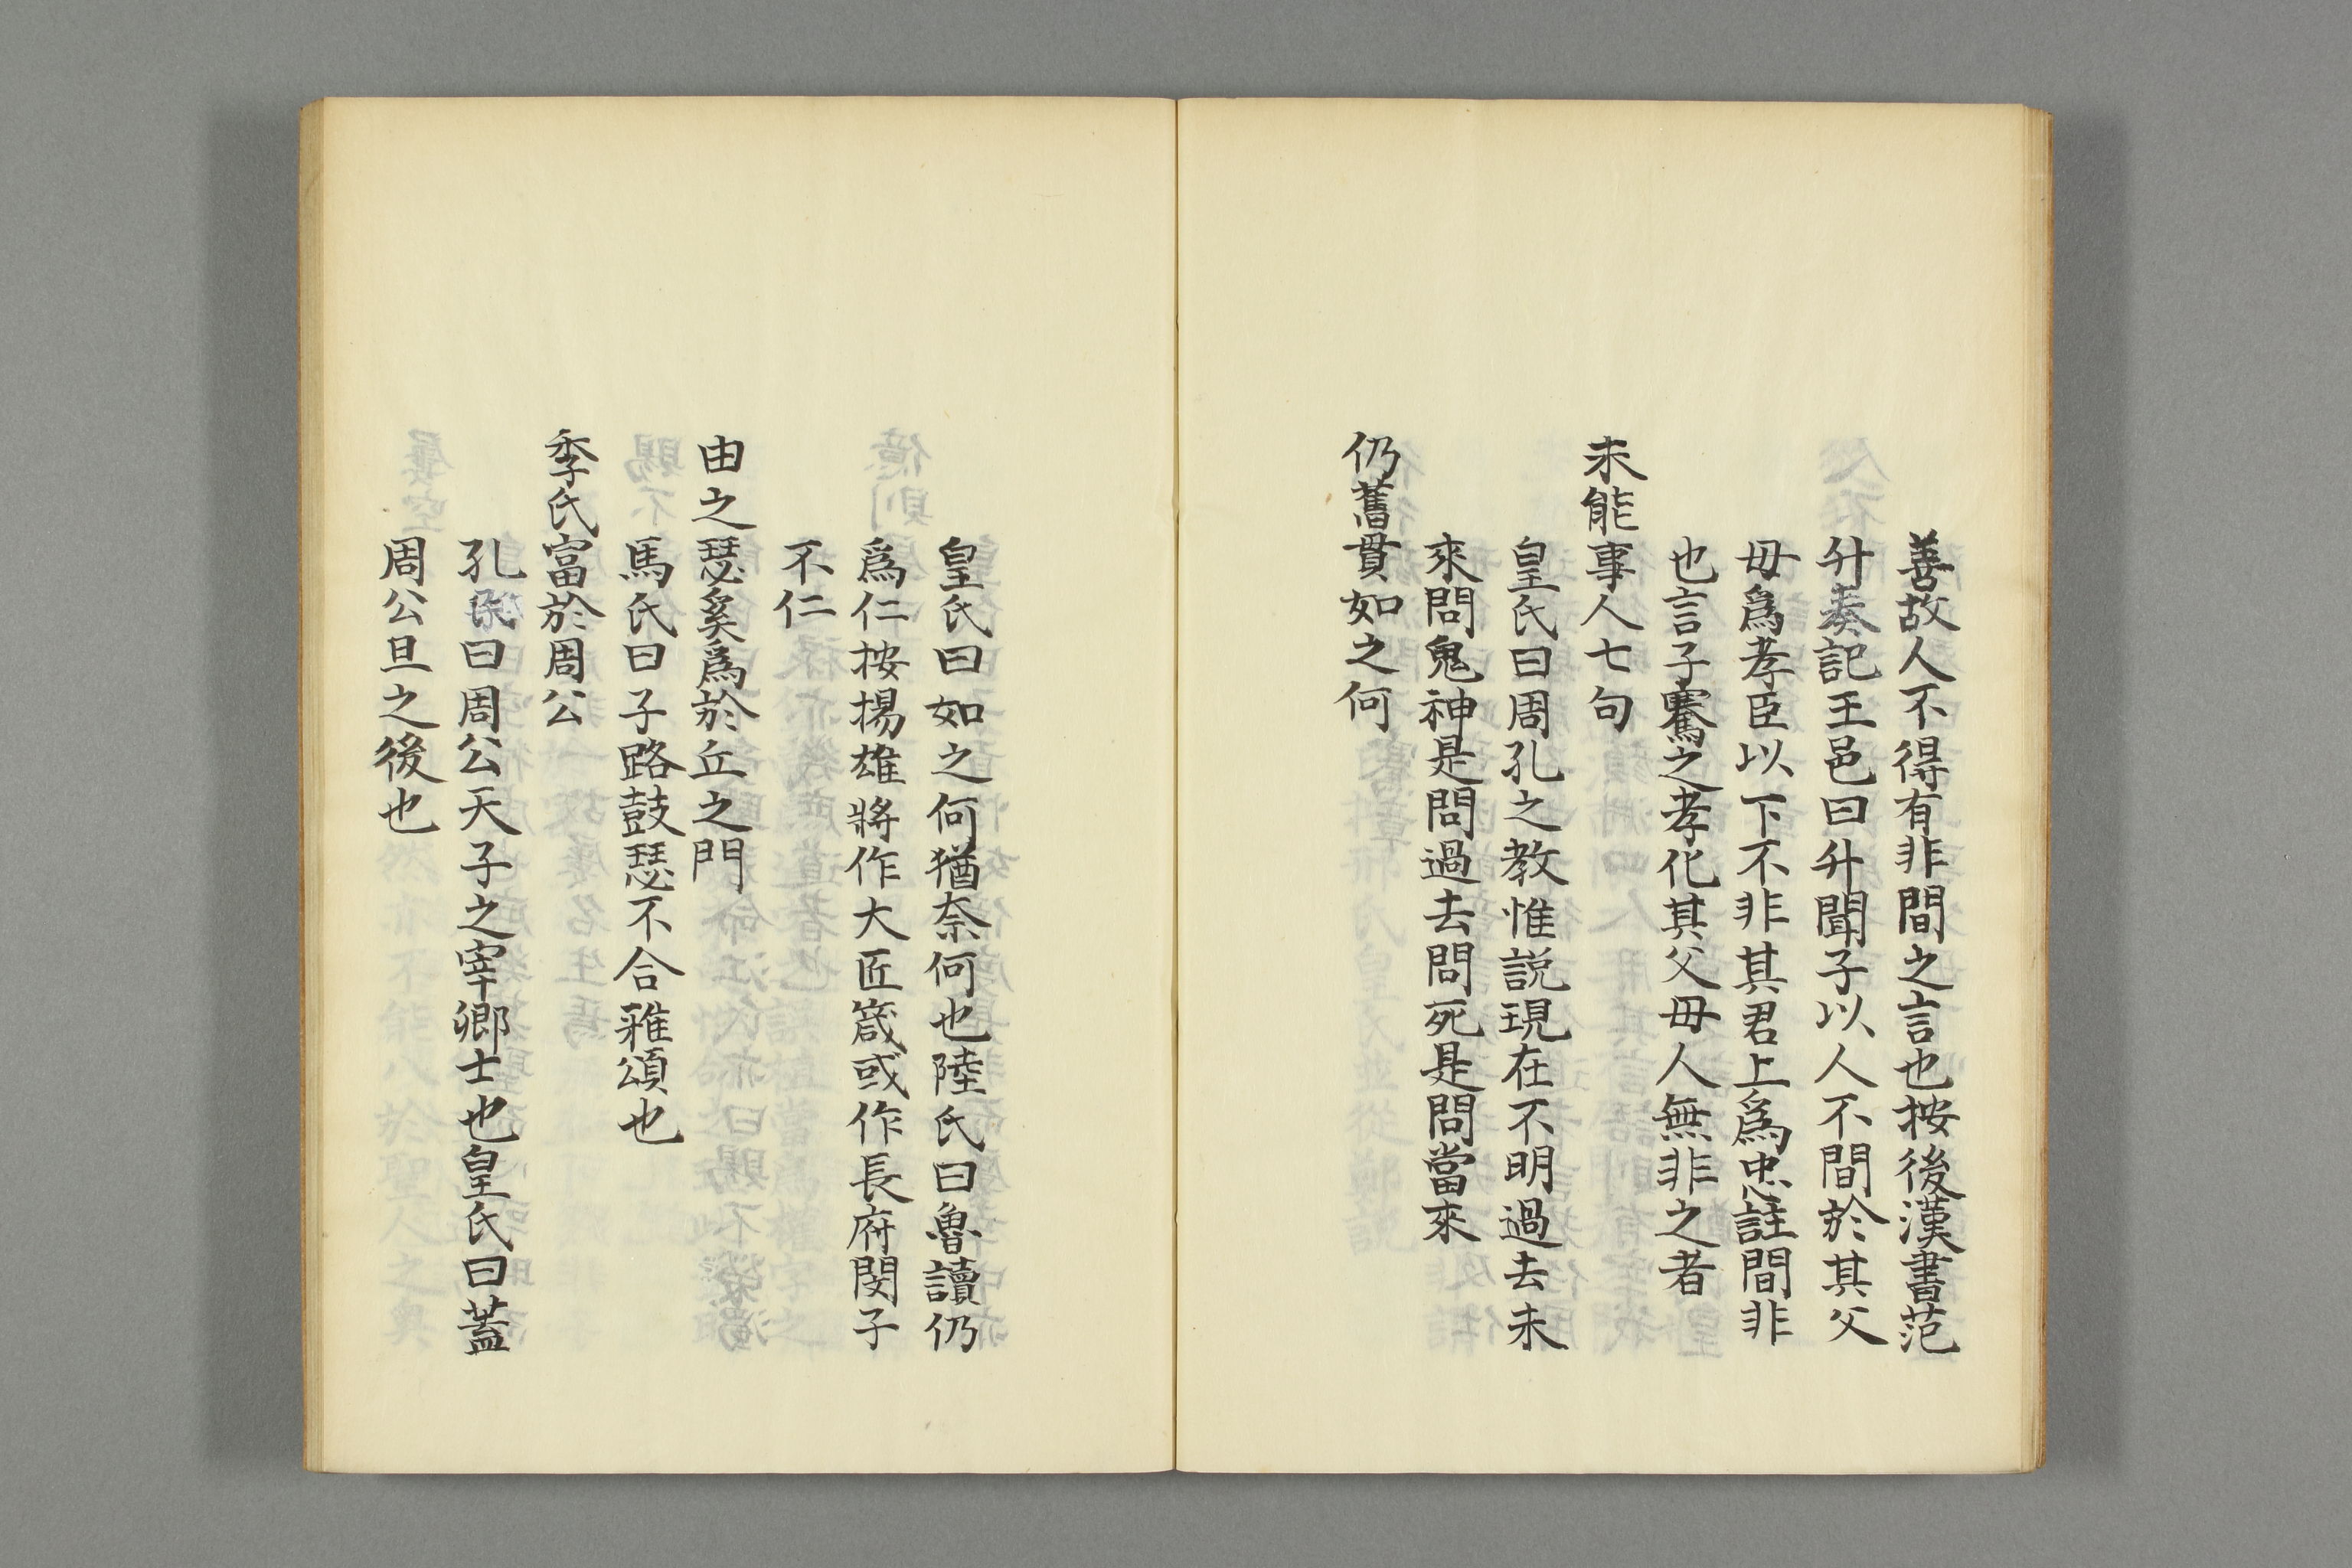 善故人不得有非間之言也按後漢書范
升奏記王邑曰升聞子以人不間於其父
母爲孝臣以下不非其君上爲忠註間非
也言子騫之孝化其父母人無非之者
未能事人七句
皇氏曰周孔之教惟説現在不明過去未
來問鬼神是問過去問死是問當來
仍舊貫如之何
皇氏曰如之何猶奈何也陸氏曰魯讀仍
爲仁按揚雄將作大匠箴或作長府閔子
不仁
由之瑟奚爲於丘之門
馬氏曰子路鼓瑟不合雅頌也
季氏富於周公
孔氏曰周公天子之宰卿士也皇氏曰蓋
周公旦之後也